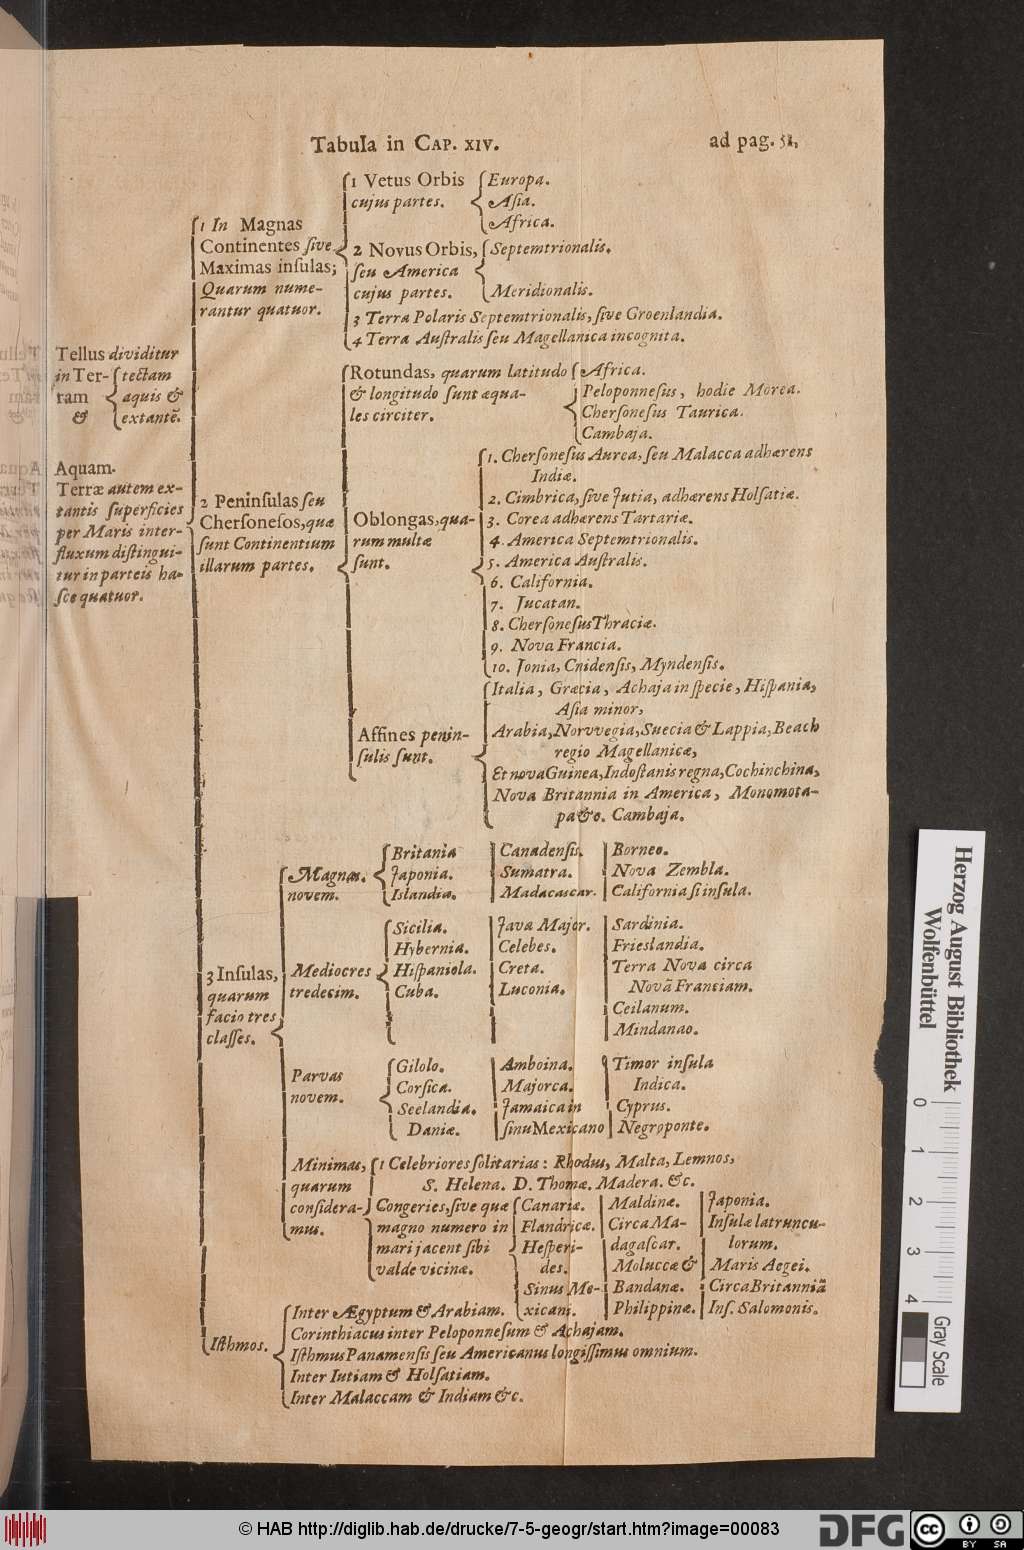 Tabula in CAP. XIV.
ad pag. 51,
Tellus dividitur
in Ter-
ram
&
tectam
aquis &
extantē.
Aquam.
Terræ autem ex-
tantis superficies
per Maris inter-
fluxum distingui-
tur in parteis ha-
sce quatuor.
1 In Magnas
Continentes sive
Maximas insulas;
Quarum nume-
rantur quatuor.
1 Vetus Orbis
cujus partes.
Europa.
Asia.
Africa.
2 Novus Orbis,
seu America
cujus partes.
Septemtrionalis.
Meridionalis.
3 Terra Polaris Septemtrionalis, sive Groenlandia.
4 Terra Australis seu Magellanica incognita.
2 Peninsulas seu
Chersonesos, quæ
sunt Continentium
illarum partes.
Rotundas, quarum latitudo
& longitudo sunt æqua-
les circiter.
Africa.
Peloponnesus, hodie Morea.
Chersonesus Taurica.
Cambaja.
Oblongas, qua-
rum multæ
sunt.
1. Chersonesus Aurea, seu Malacca adhærens
Indiæ.
2. Cimbrica, sive Jutia, adhærens Holsatiæ.
3. Corea adhærens Tartariæ.
4. America Septemtrionalis.
5. America Australis.
6. California.
7. Jucatan.
8. Chersonesus Thraciæ.
9. Nova Francia.
10. Jonia, Cnidensis, Myndensis.
Affines penin-
sulis sunt.
Italia, Græcia, Achaja in specie, Hispania,
Asia minor,
Arabia, Norvvegia, Suecia & Lappia, Beach
regio Magellanicæ,
Et nova Guinea, Indostanis regna, Cochinchina,
Nova Britannia in America, Monomota-
pa &c. Cambaja.
3 Insulas,
quarum
facio tres
classes.
Magnas.
novem.
Britania
Japonia.
Islandia.
Canadensis.
Sumatra.
Madacascar.
Borneo.
Nova Zembla.
California si insula.
Mediocres
tredecim.
Sicilia.
Hybernia.
Hispaniola.
Cuba.
Java Major.
Celebes.
Creta.
Luconia.
Sardinia.
Frieslandia.
Terra Nova circa
Novā Franciam.
Ceilanum.
Mindanao.
Parvas
novem.
Gilolo.
Corsica.
Seelandia.
Daniæ.
Amboina.
Majorca.
Jamaica in
sinu Mexicano
Timor insula
Indica.
Cyprus.
Negroponte.
Minimas,
quarum
considera-
mus.
1 Celebriores solitarias: Rhodus, Malta, Lemnos,
S. Helena. D. Thomæ. Madera. &c.
Congeries, sive quæ
magno numero in
mari jacent sibi
valde vicinæ.
Canariæ.
Flandricæ.
Hesperi-
des.
Sinus Me-
xicani.
Maldinæ.
Circa Ma-
dagascar.
Moluccæ &
Bandanæ.
Philippinæ.
Japonia.
Insulæ latruncu-
lorum.
Maris Aegei.
Circa Britanniā
Ins. Salomonis.
Isthmos.
Inter Ægyptum & Arabiam.
Corinthiacus inter Peloponnesum & Achajam.
Isthmus Panamensis seu Americanus longissimus omnium.
Inter Iutiam & Holsatiam.
Inter Malaccam & Indiam &c.
Herzog August Bibliothek
Wolfenbüttel
0 1 2 3 4
Gray Scale
© HAB http://diglib.hab.de/drucke/7-5-geogr/start.htm?image=00083
DFG
cc BY SA